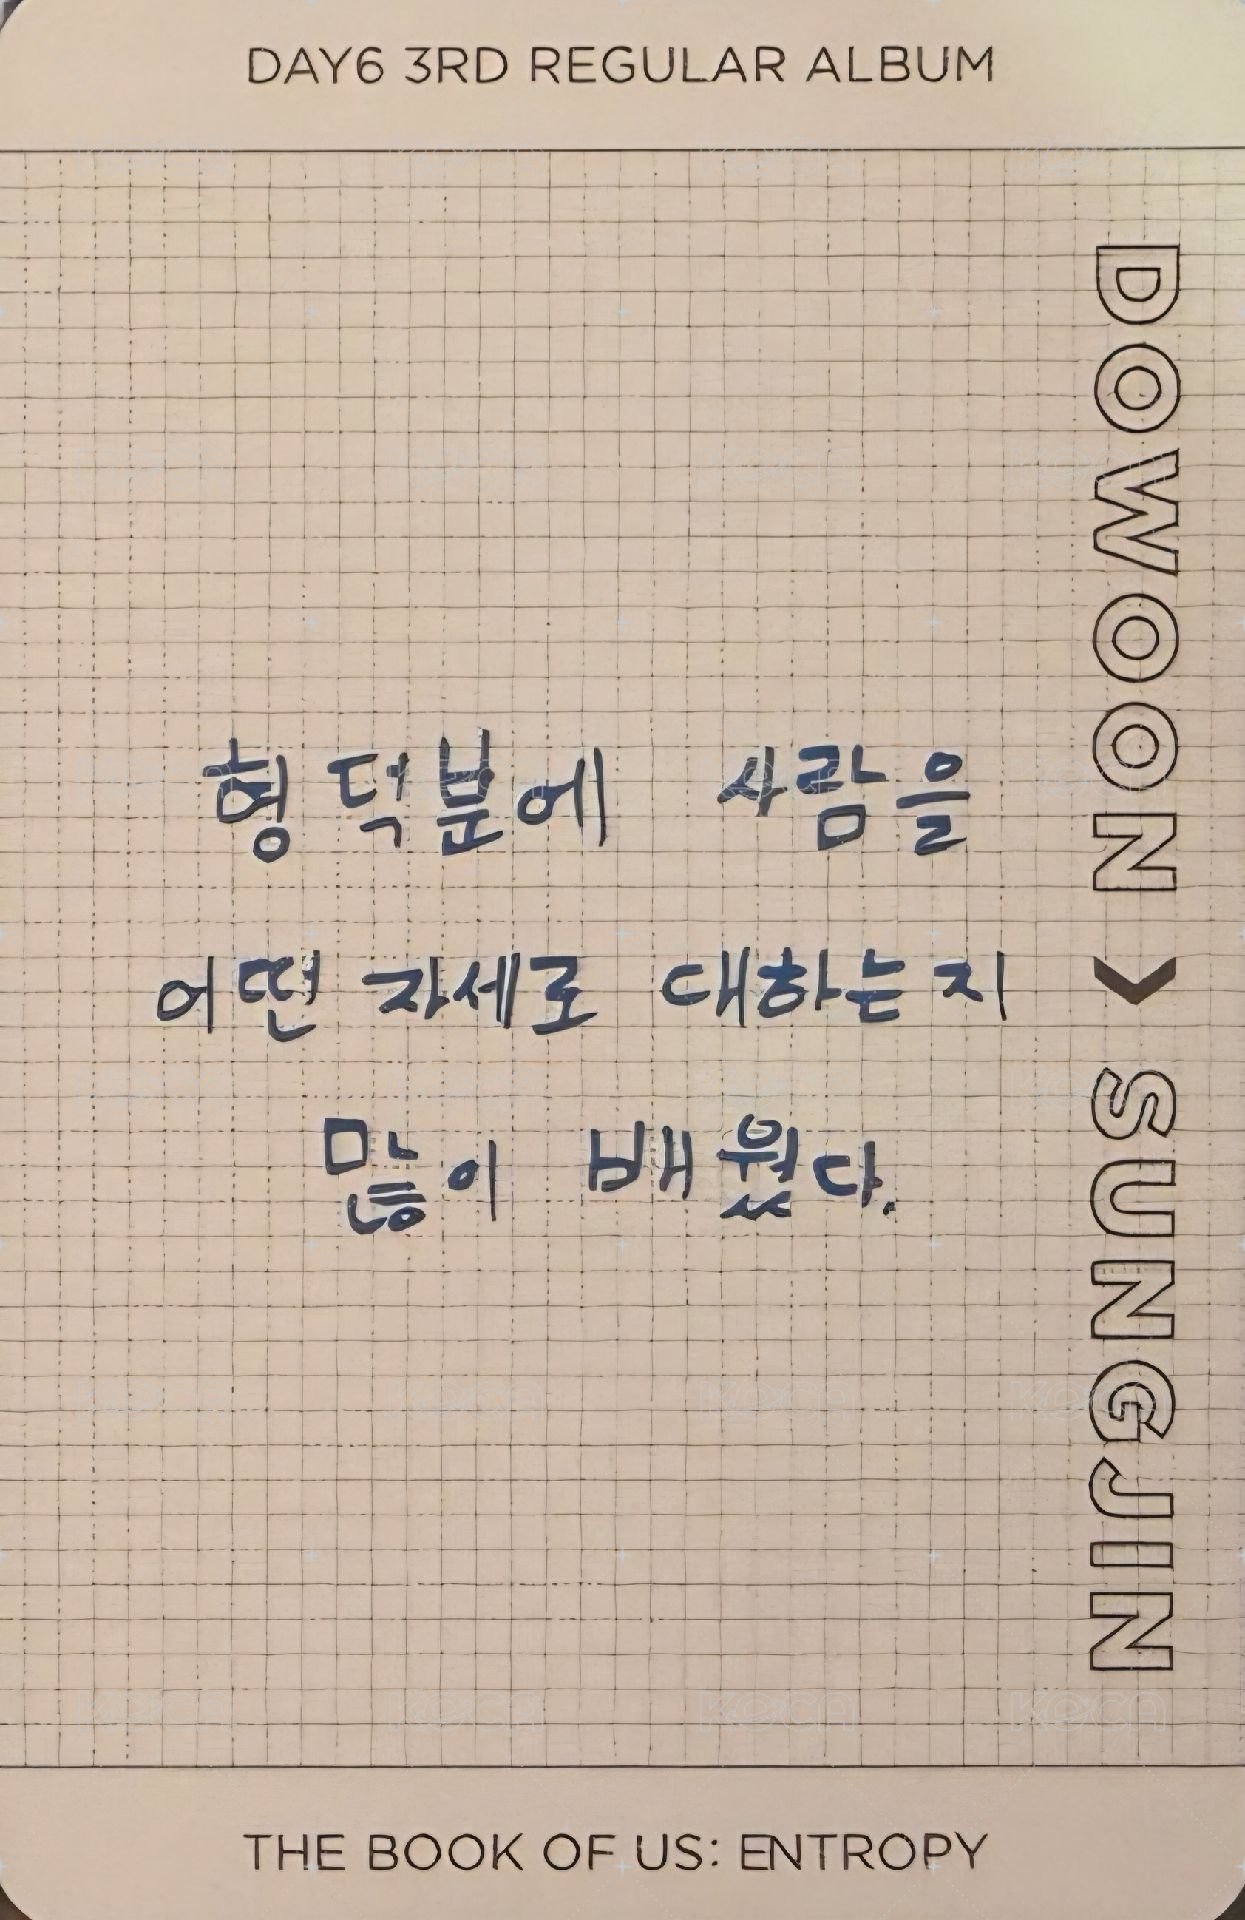 DAY6 3RD REGULAR ALBUM
형 덕분에 사람을
어떤 자세로 대하는지
많이 배웠다.
DOWOON < SUNGJIN
THE BOOK OF US: ENTROPY
KOCA